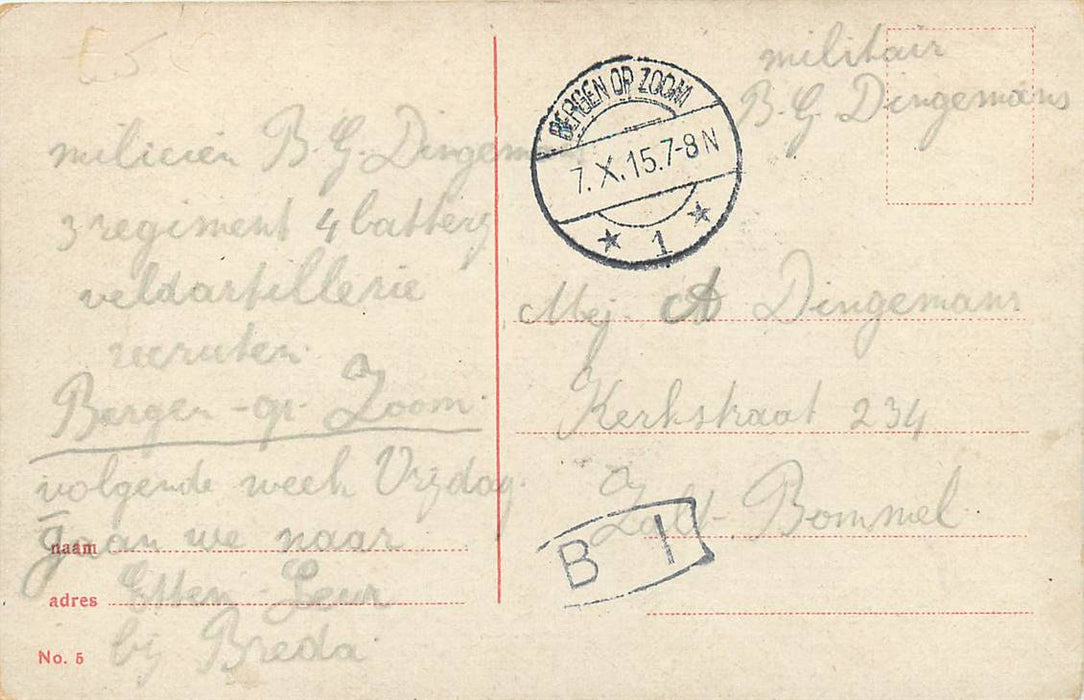 milicien B G. Dingemans
3 regiment 4 battery
veldartillerie
recruten.
Bergen-op-Zoom.
volgende week Vrijdag.
gaan we naar
Etten-Leur
bij Breda
naam
adres
No. 5
BERGEN OP ZOOM
7.X.15.7-8N
1
militair
B. G. Dingemans
Mej. A Dingemans
Kerkstraat 234
Zalt-Bommel
B I